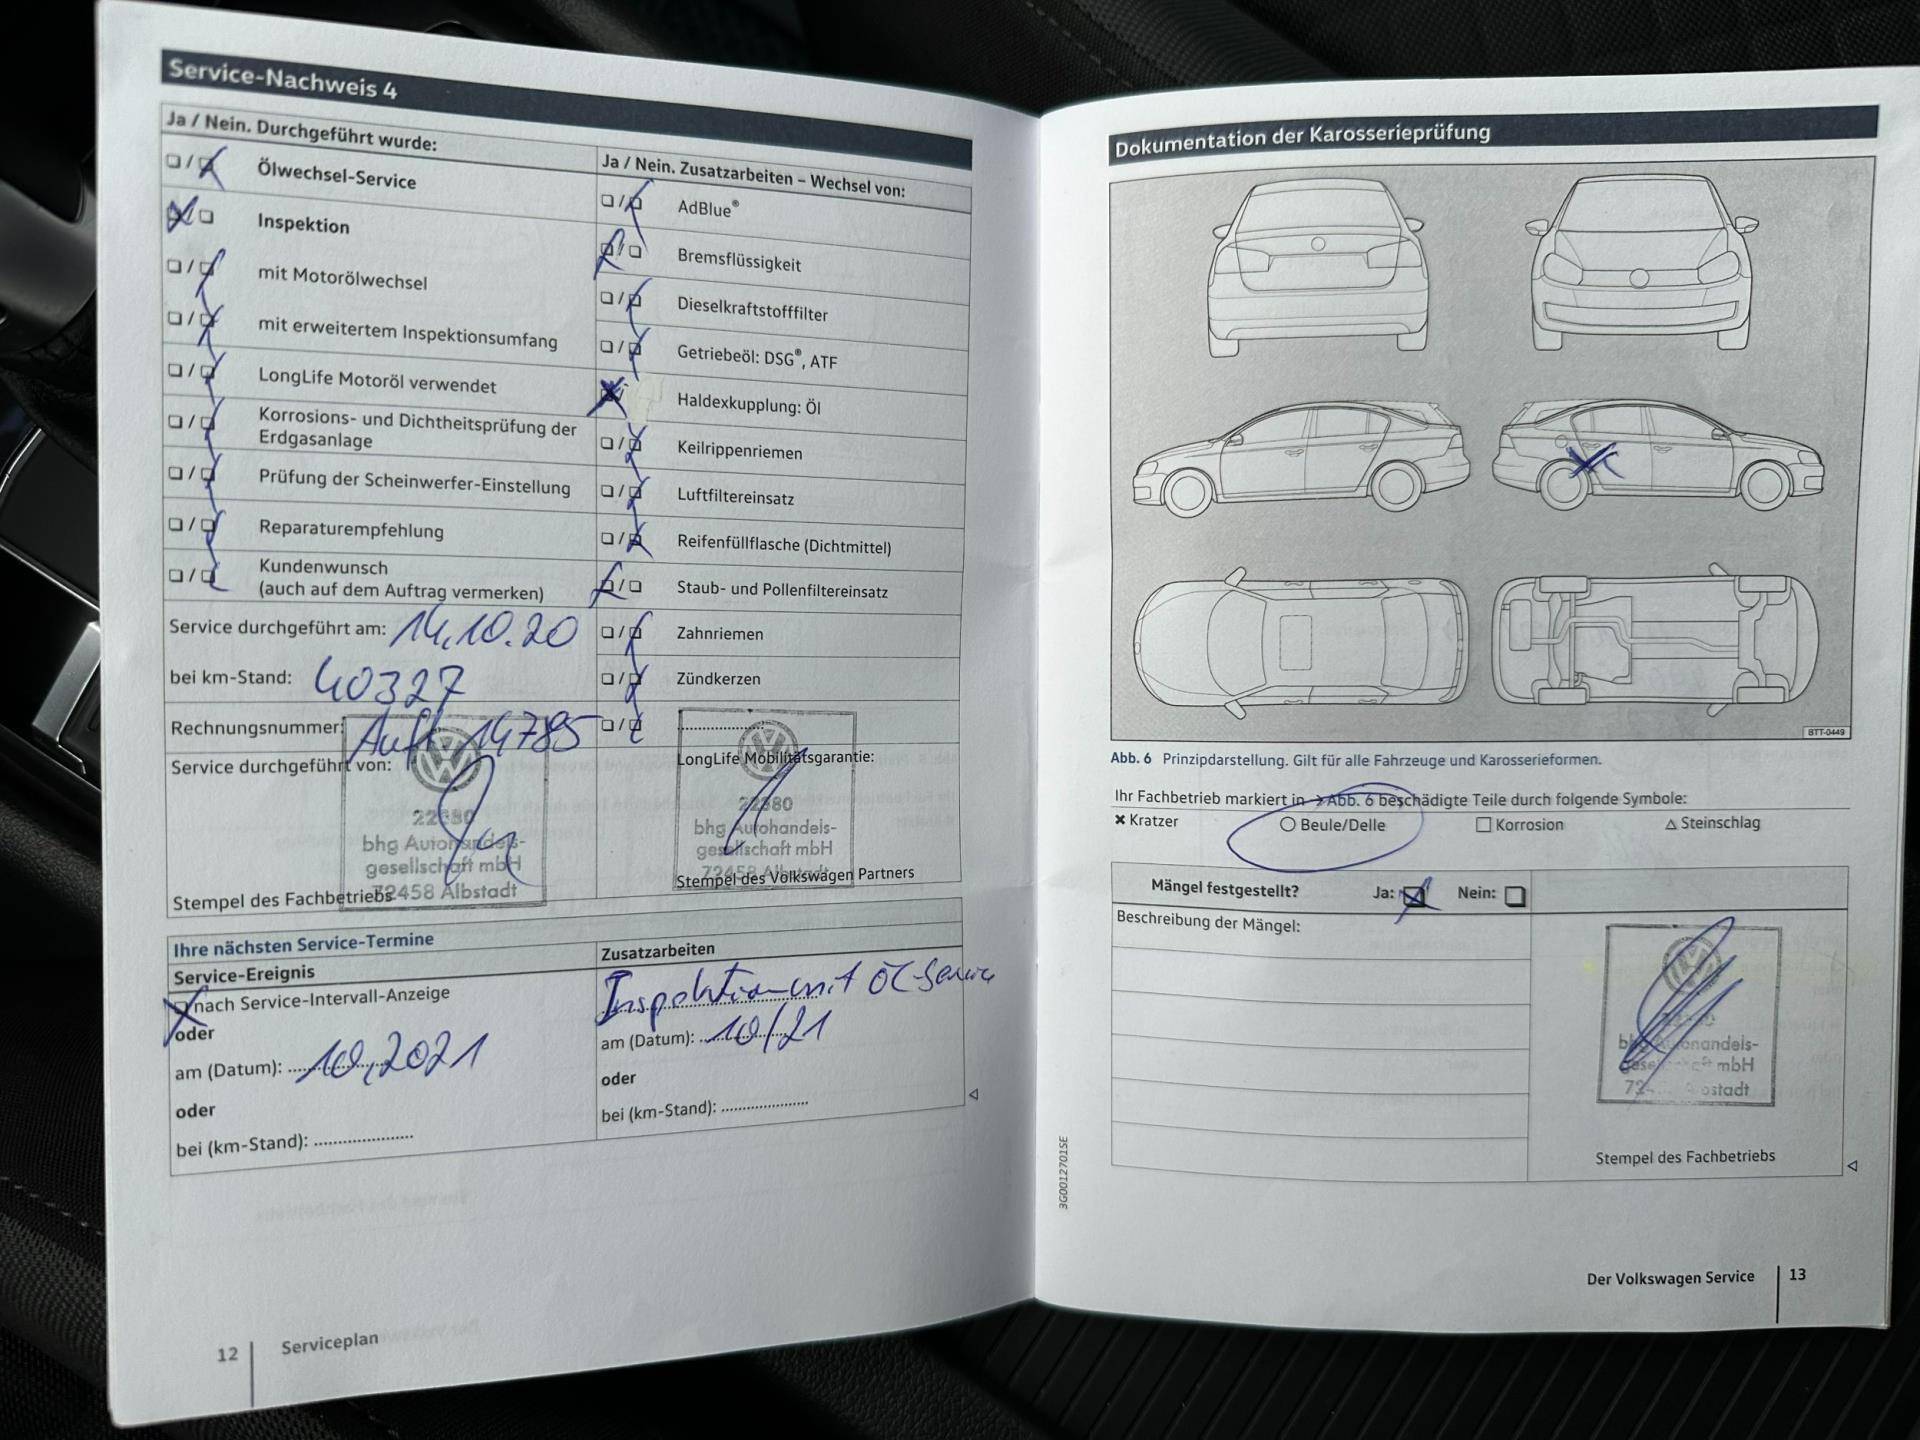 Service-Nachweis 4
Ja / Nein. Durchgeführt wurde:
Ölwechsel-Service
Inspektion
mit Motorölwechsel
mit erweitertem Inspektionsumfang
LongLife Motoröl verwendet
Korrosions- und Dichtheitsprüfung der
Erdgasanlage
Prüfung der Scheinwerfer-Einstellung
Reparaturempfehlung
Kundenwunsch
(auch auf dem Auftrag vermerken)
Service durchgeführt am: 14.10.20
bei km-Stand: 40327
Rechnungsnummer: Auft. 14785
Service durchgeführt von:
22380
bhg Autohandels-
gesellschaft mbH
72458 Albstadt
Stempel des Fachbetriebs
Ja / Nein. Zusatzarbeiten – Wechsel von:
AdBlue®
Bremsflüssigkeit
Dieselkraftstofffilter
Getriebeöl: DSG®, ATF
Haldexkupplung: Öl
Keilrippenriemen
Luftfiltereinsatz
Reifenfüllflasche (Dichtmittel)
Staub- und Pollenfiltereinsatz
Zahnriemen
Zündkerzen
LongLife Mobilitätsgarantie:
22380
bhg Autohandels-
gesellschaft mbH
72458 Albstadt
Stempel des Volkswagen Partners
Ihre nächsten Service-Termine
Service-Ereignis
nach Service-Intervall-Anzeige
oder
am (Datum): 10.2021
oder
bei (km-Stand): ....................
Zusatzarbeiten
Inspektion mit Öl-Service
am (Datum): 10/21
oder
bei (km-Stand): ....................
12
Serviceplan
Dokumentation der Karosserieprüfung
BTT-0449
Abb. 6 Prinzipdarstellung. Gilt für alle Fahrzeuge und Karosserieformen.
Ihr Fachbetrieb markiert in → Abb. 6 beschädigte Teile durch folgende Symbole:
✖ Kratzer ○ Beule/Delle □ Korrosion △ Steinschlag
Mängel festgestellt? Ja: Nein:
Beschreibung der Mängel:
bhg Autohandels-
gesellschaft mbH
Albstadt
Stempel des Fachbetriebs
3G0012701SE
Der Volkswagen Service
13